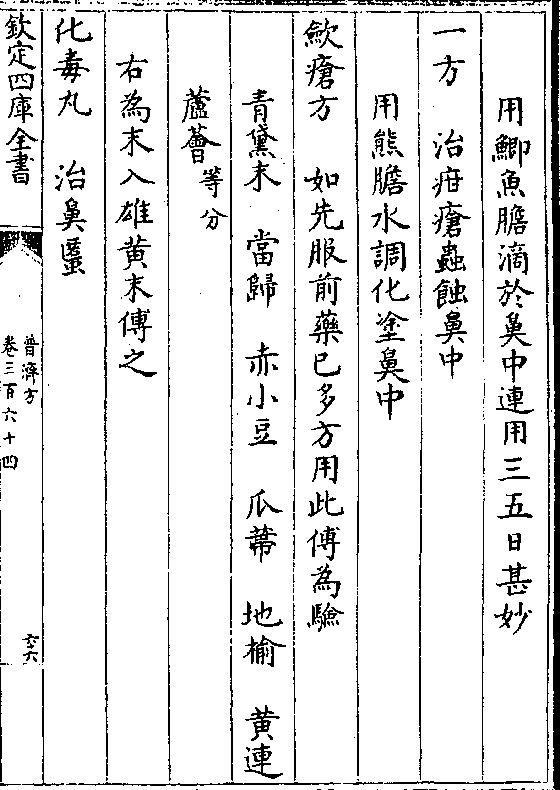 用鯽魚膽滴於鼻中連用三五日甚妙
一方　治疳瘡蟲蝕鼻中
用熊膽水調化塗鼻中
歛瘡方　如先服前藥已多方用此傅為驗
青黛末　當歸　赤小豆　瓜蒂　地榆　黃連
蘆薈等分
右為末入雄黃末傅之
化毒丸　治鼻䘌
欽定四庫全書
普濟方
卷三百六十四
六六